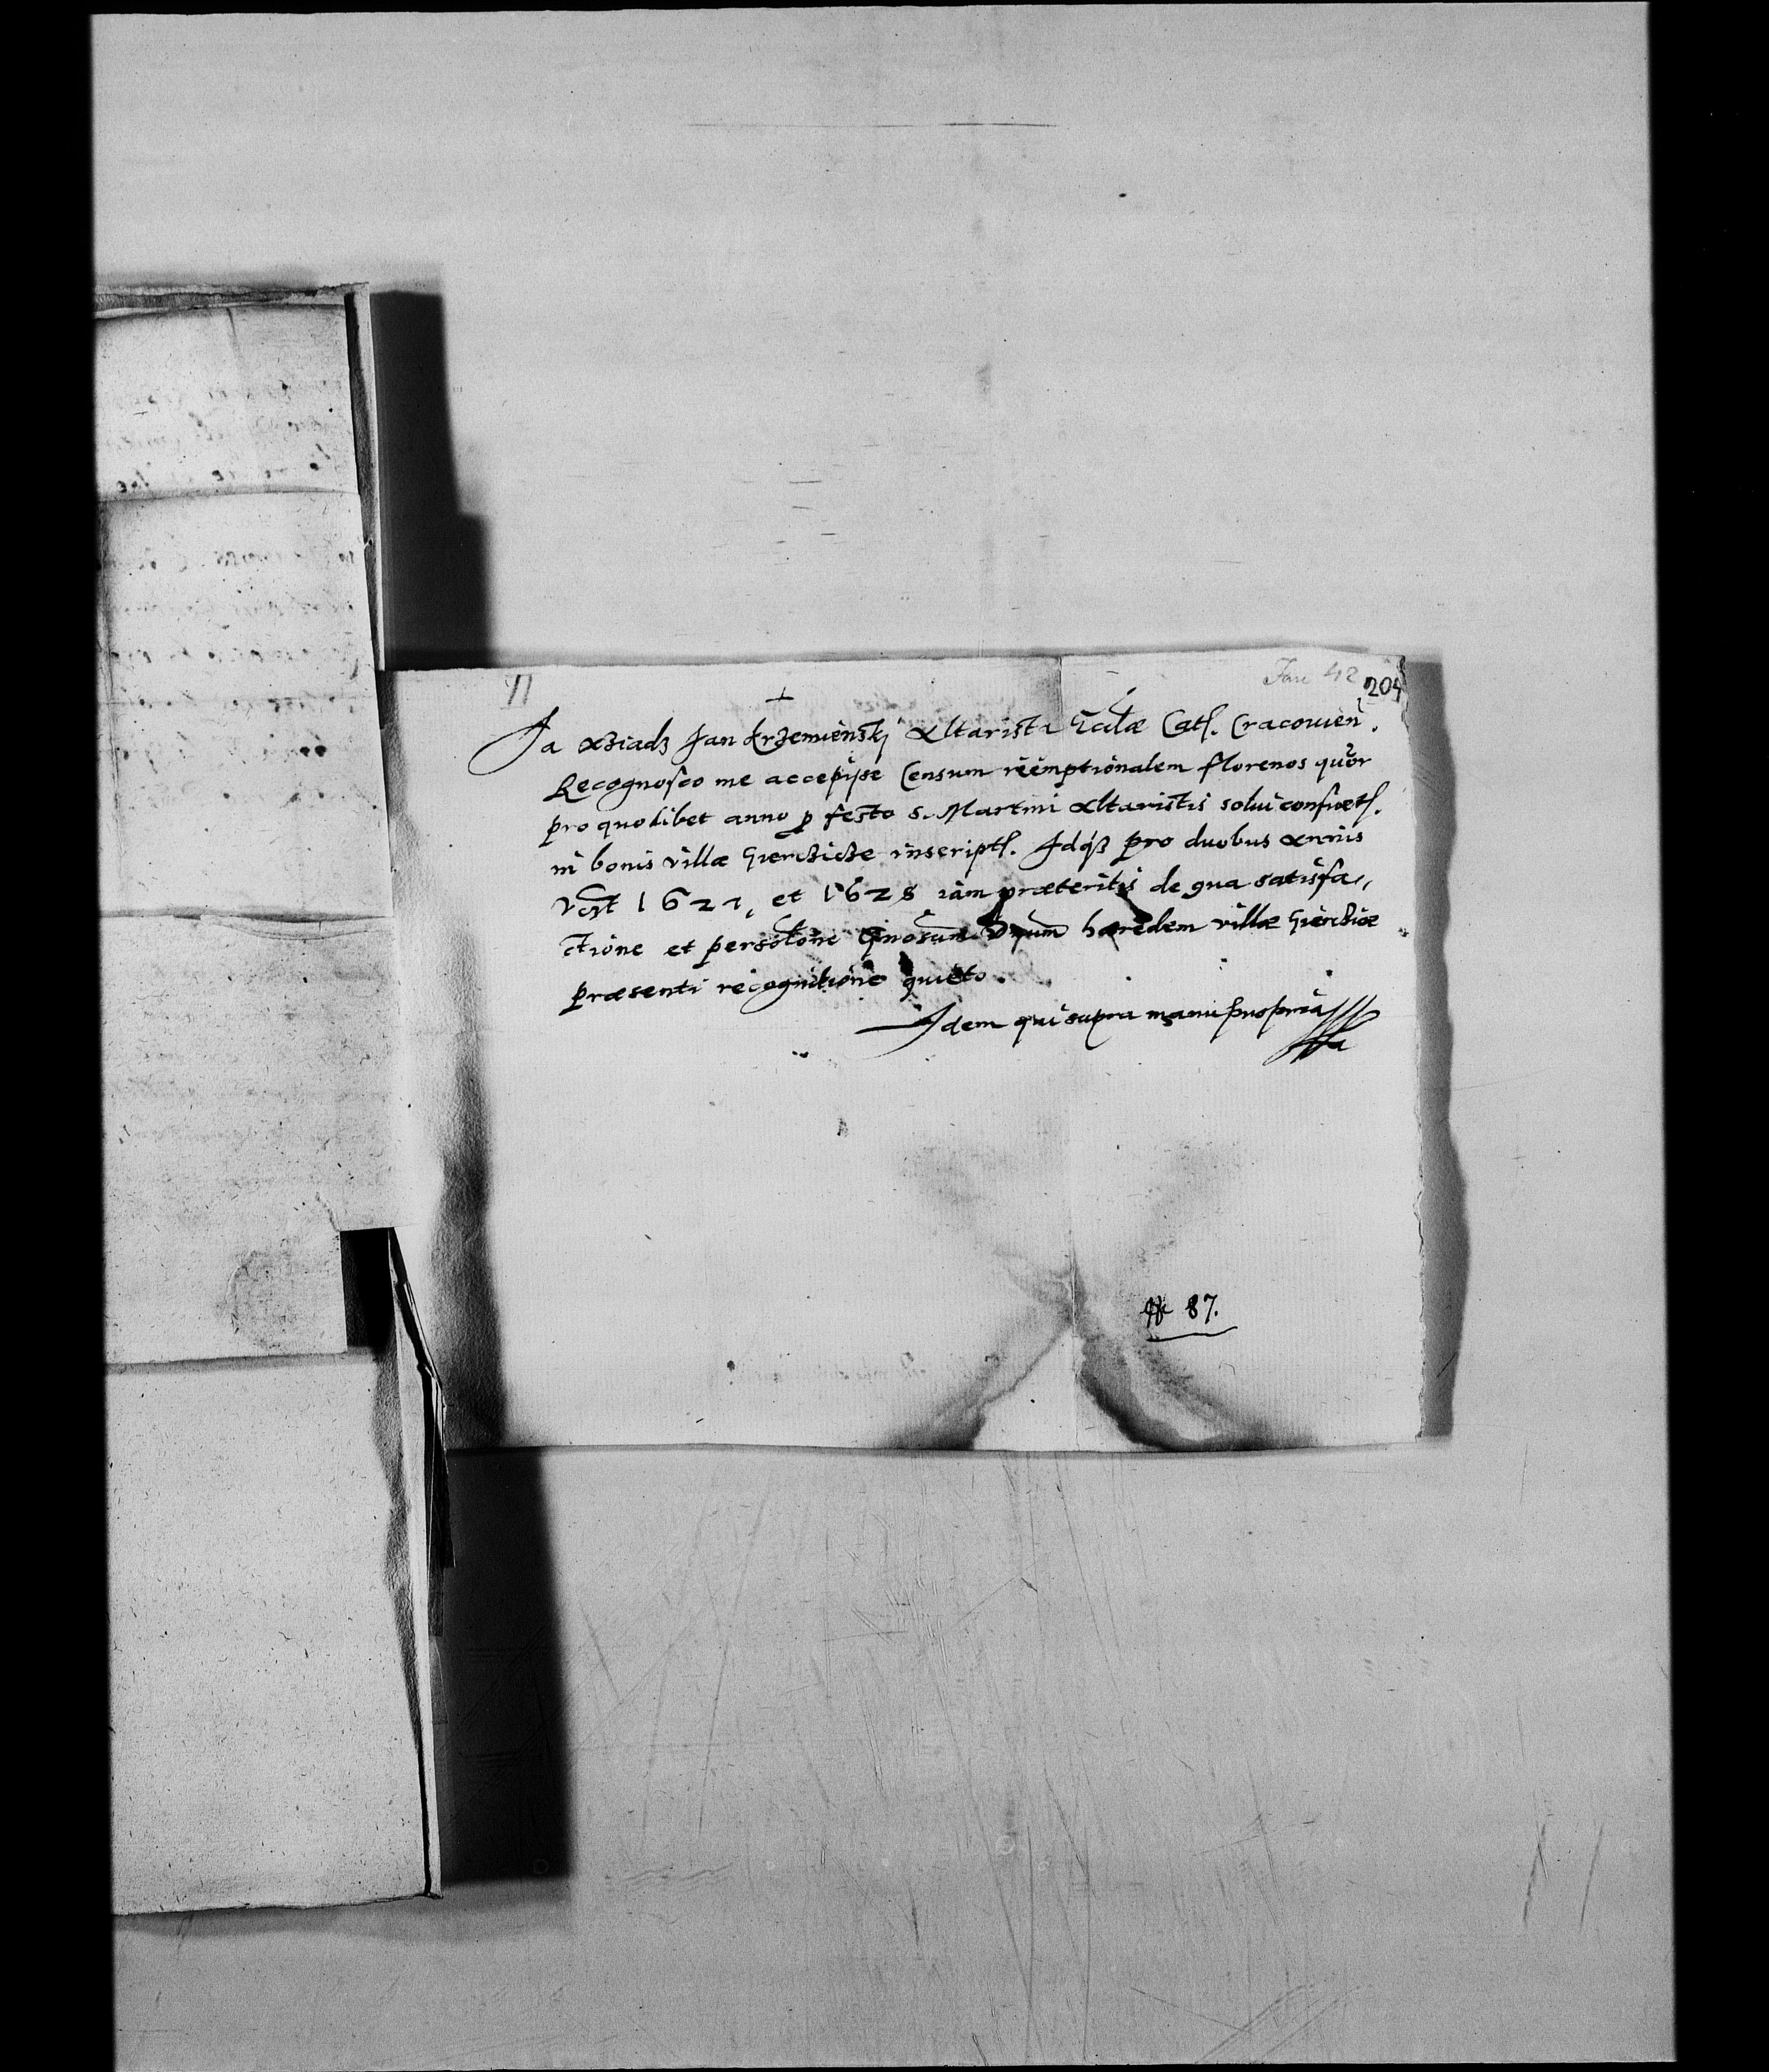 11
Fasc 42 204
Ja Xziadz Jan Krzemienskj Altarista Eccłæ Cath. Cracouien.
Recognosco me accepisse Censum reemptionalem florenos quor
pro quolibet anno p festo S. Martini Altaristis solui consuet.
in bonis villæ Gierczicze inscript. Idqz pro duobus annis
vcꝫt 1627, et 1628 iam præteritis de qua satisfa,,
ctione et persolone Gnosum Dnum hæredem villæ Gierczicæ
præsenti recognitione quieto.
Idem qui supra manu propria
№ 87.